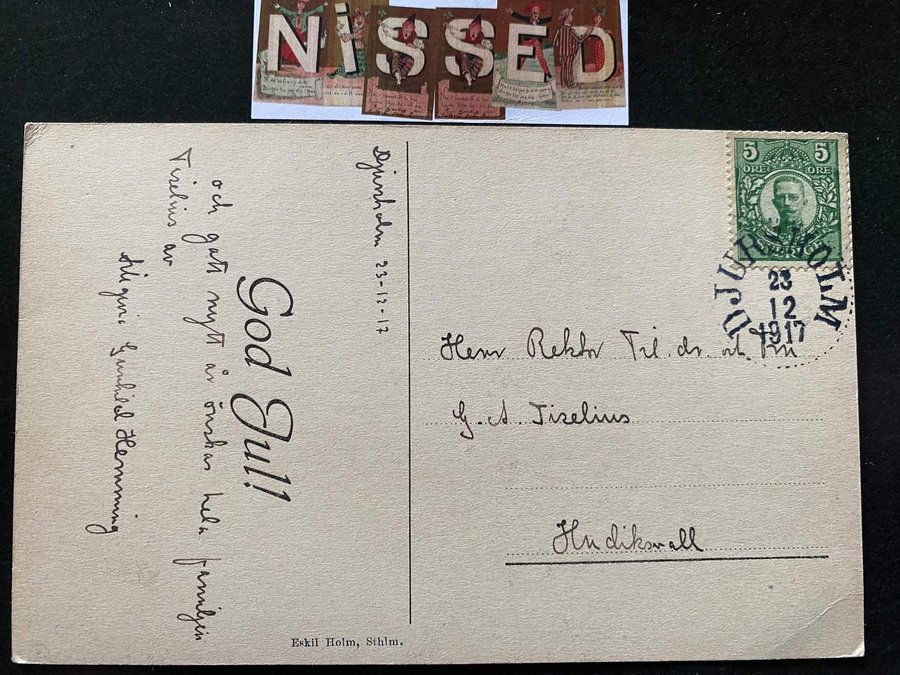 NISSED
5 5
ÖRE ÖRE
DJURSHOLM
23
12
1917
Djursholm 23-12-17
God Jul!
och gott nytt år önskas hela familjen
Tiselius av
Gunhild Hemming
Herr Rektor Fil. dr. och Fru
G. A. Tiselius
Hudiksvall
Eskil Holm, Sthlm.